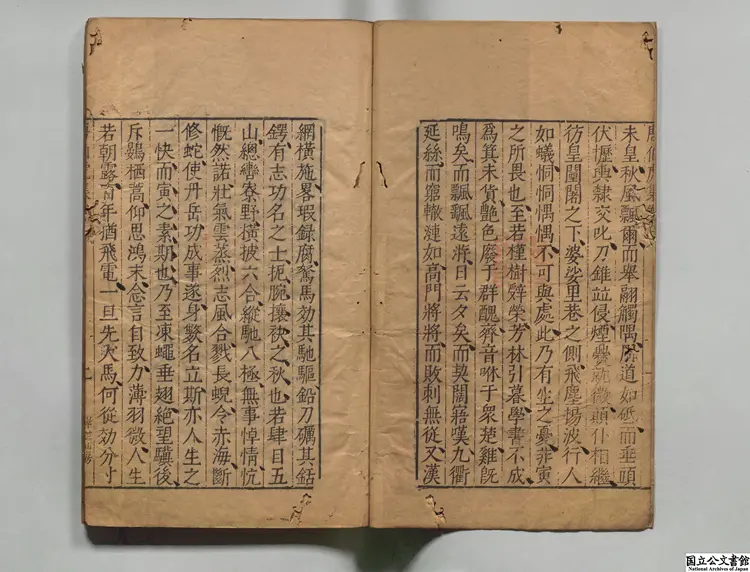 未皇秋風飄爾而舉翮觸隅道如砥而垂頭
伏櫪輿隷交叱刀錐竝侵煙爨微頭仆相繼
彷皇闤闠之下婆娑里巷之側飛塵揚波行人
如蟻恫恫愲愲不可與處此乃有生之憂非寅
之所畏也至若槿樹辤榮芳林引暮學書不成
爲箕未貨艶色廢于群醜齊音咻于衆楚雞旣
鳴矣而飄飄遠將日云夕矣而契闊寤嘆九衢
延絲而窮轍漣如高門將將而敗刺無從又漢
網橫施畧瑕録腐駑馬効其馳驅鉛刀礪其銛
鍔有志功名之士扼腕攘袂之秋也若肆目五
山總轡寮野橫披六合縱馳八極無事悼情忼
慨然諾壯氣雲蒸烈志風合戮長蜺令赤海斷
修蛇使丹岳功成事遂身斃名立斯亦人生之
一快而寅之素斯也乃至凍蠅垂翅絕望驥後
斥鷃栖蒿仰思鴻末念言自致力薄羽微人生
若朝露百年猶飛電一旦先犬馬何從効分寸
国立公文書館
National Archives of Japan